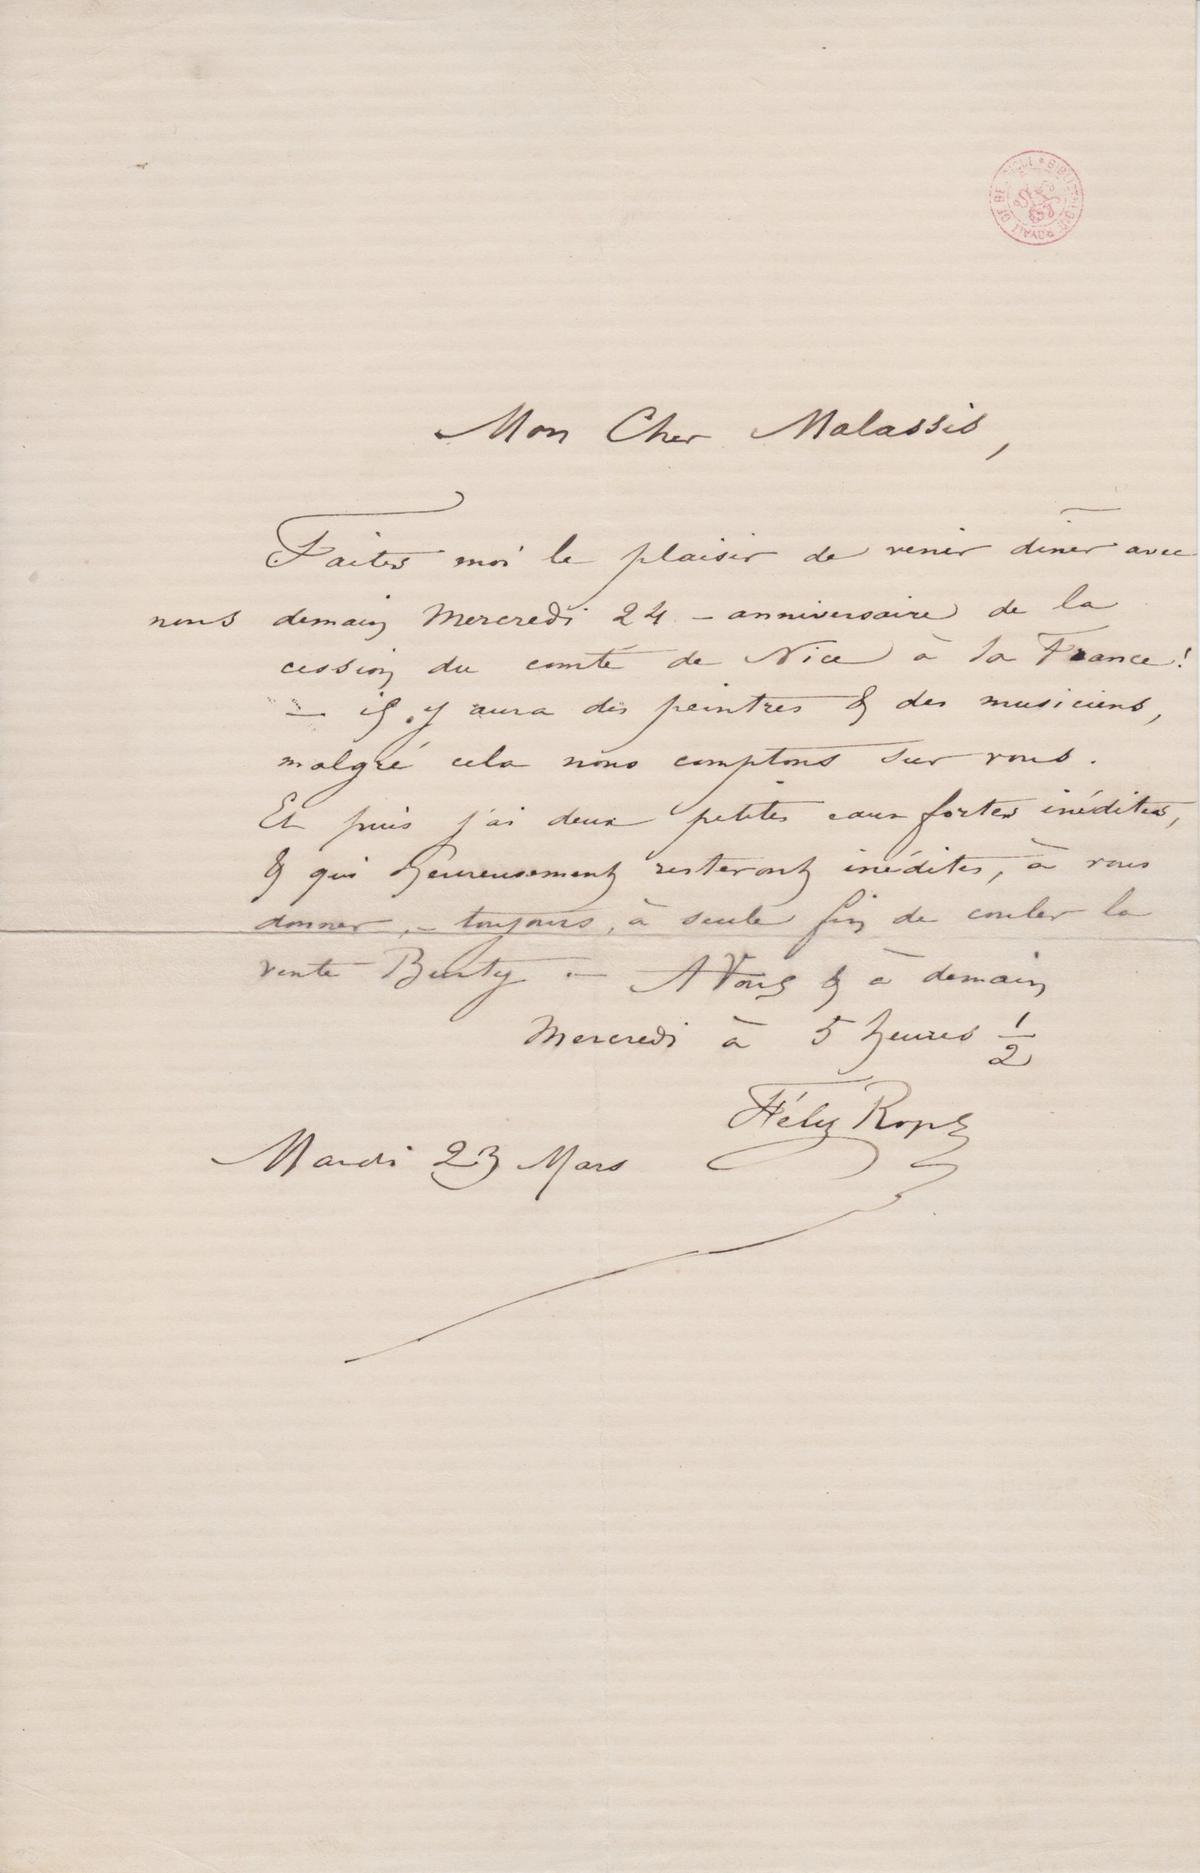 Mon Cher Malassis,
Faites moi le plaisir de venir dîner avec
nous demain Mercredi 24 – anniversaire de la
cession du comté de Nice à la France!
– il y aura des peintres & des musiciens,
malgré cela nous comptons sur vous.
Et puis j'ai deux petites eaux fortes inédites,
& qui heureusement resteront inédites, à vous
donner, – toujours, à seule fin de couler la
vente Burty. – A Vous & à demain
Mercredi à 5 heures 1/2
Félix Rops
Mardi 23 Mars